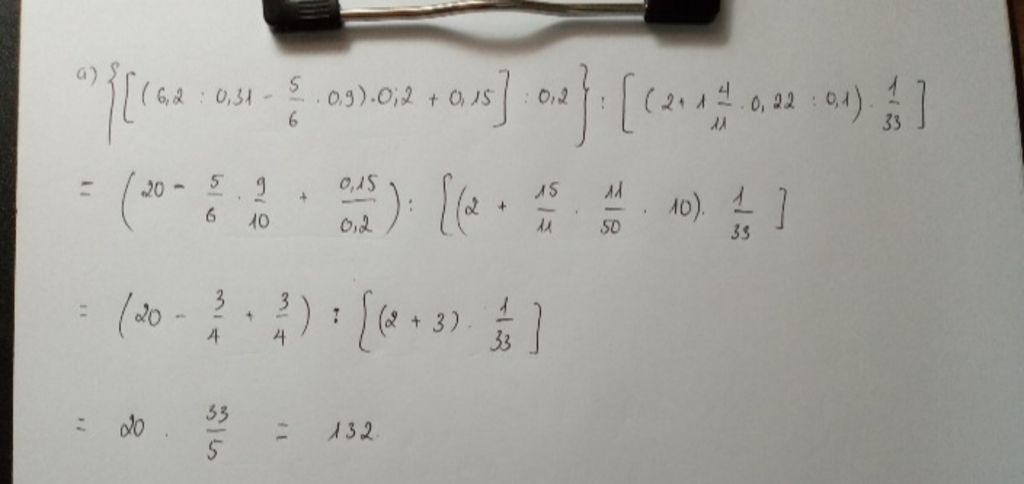 a) {[(6,2 : 0,31 - 5/6 . 0,9) . 0,2 + 0,15] : 0,2} : [(2 + 1 4/11 . 0,22 : 0,1) . 1/33]
= (20 - 5/6 . 9/10 + 0,15/0,2) : [(2 + 15/11 . 11/50 . 10) . 1/33]
= (20 - 3/4 + 3/4) : [(2 + 3) . 1/33]
= 20 . 33/5 = 132.